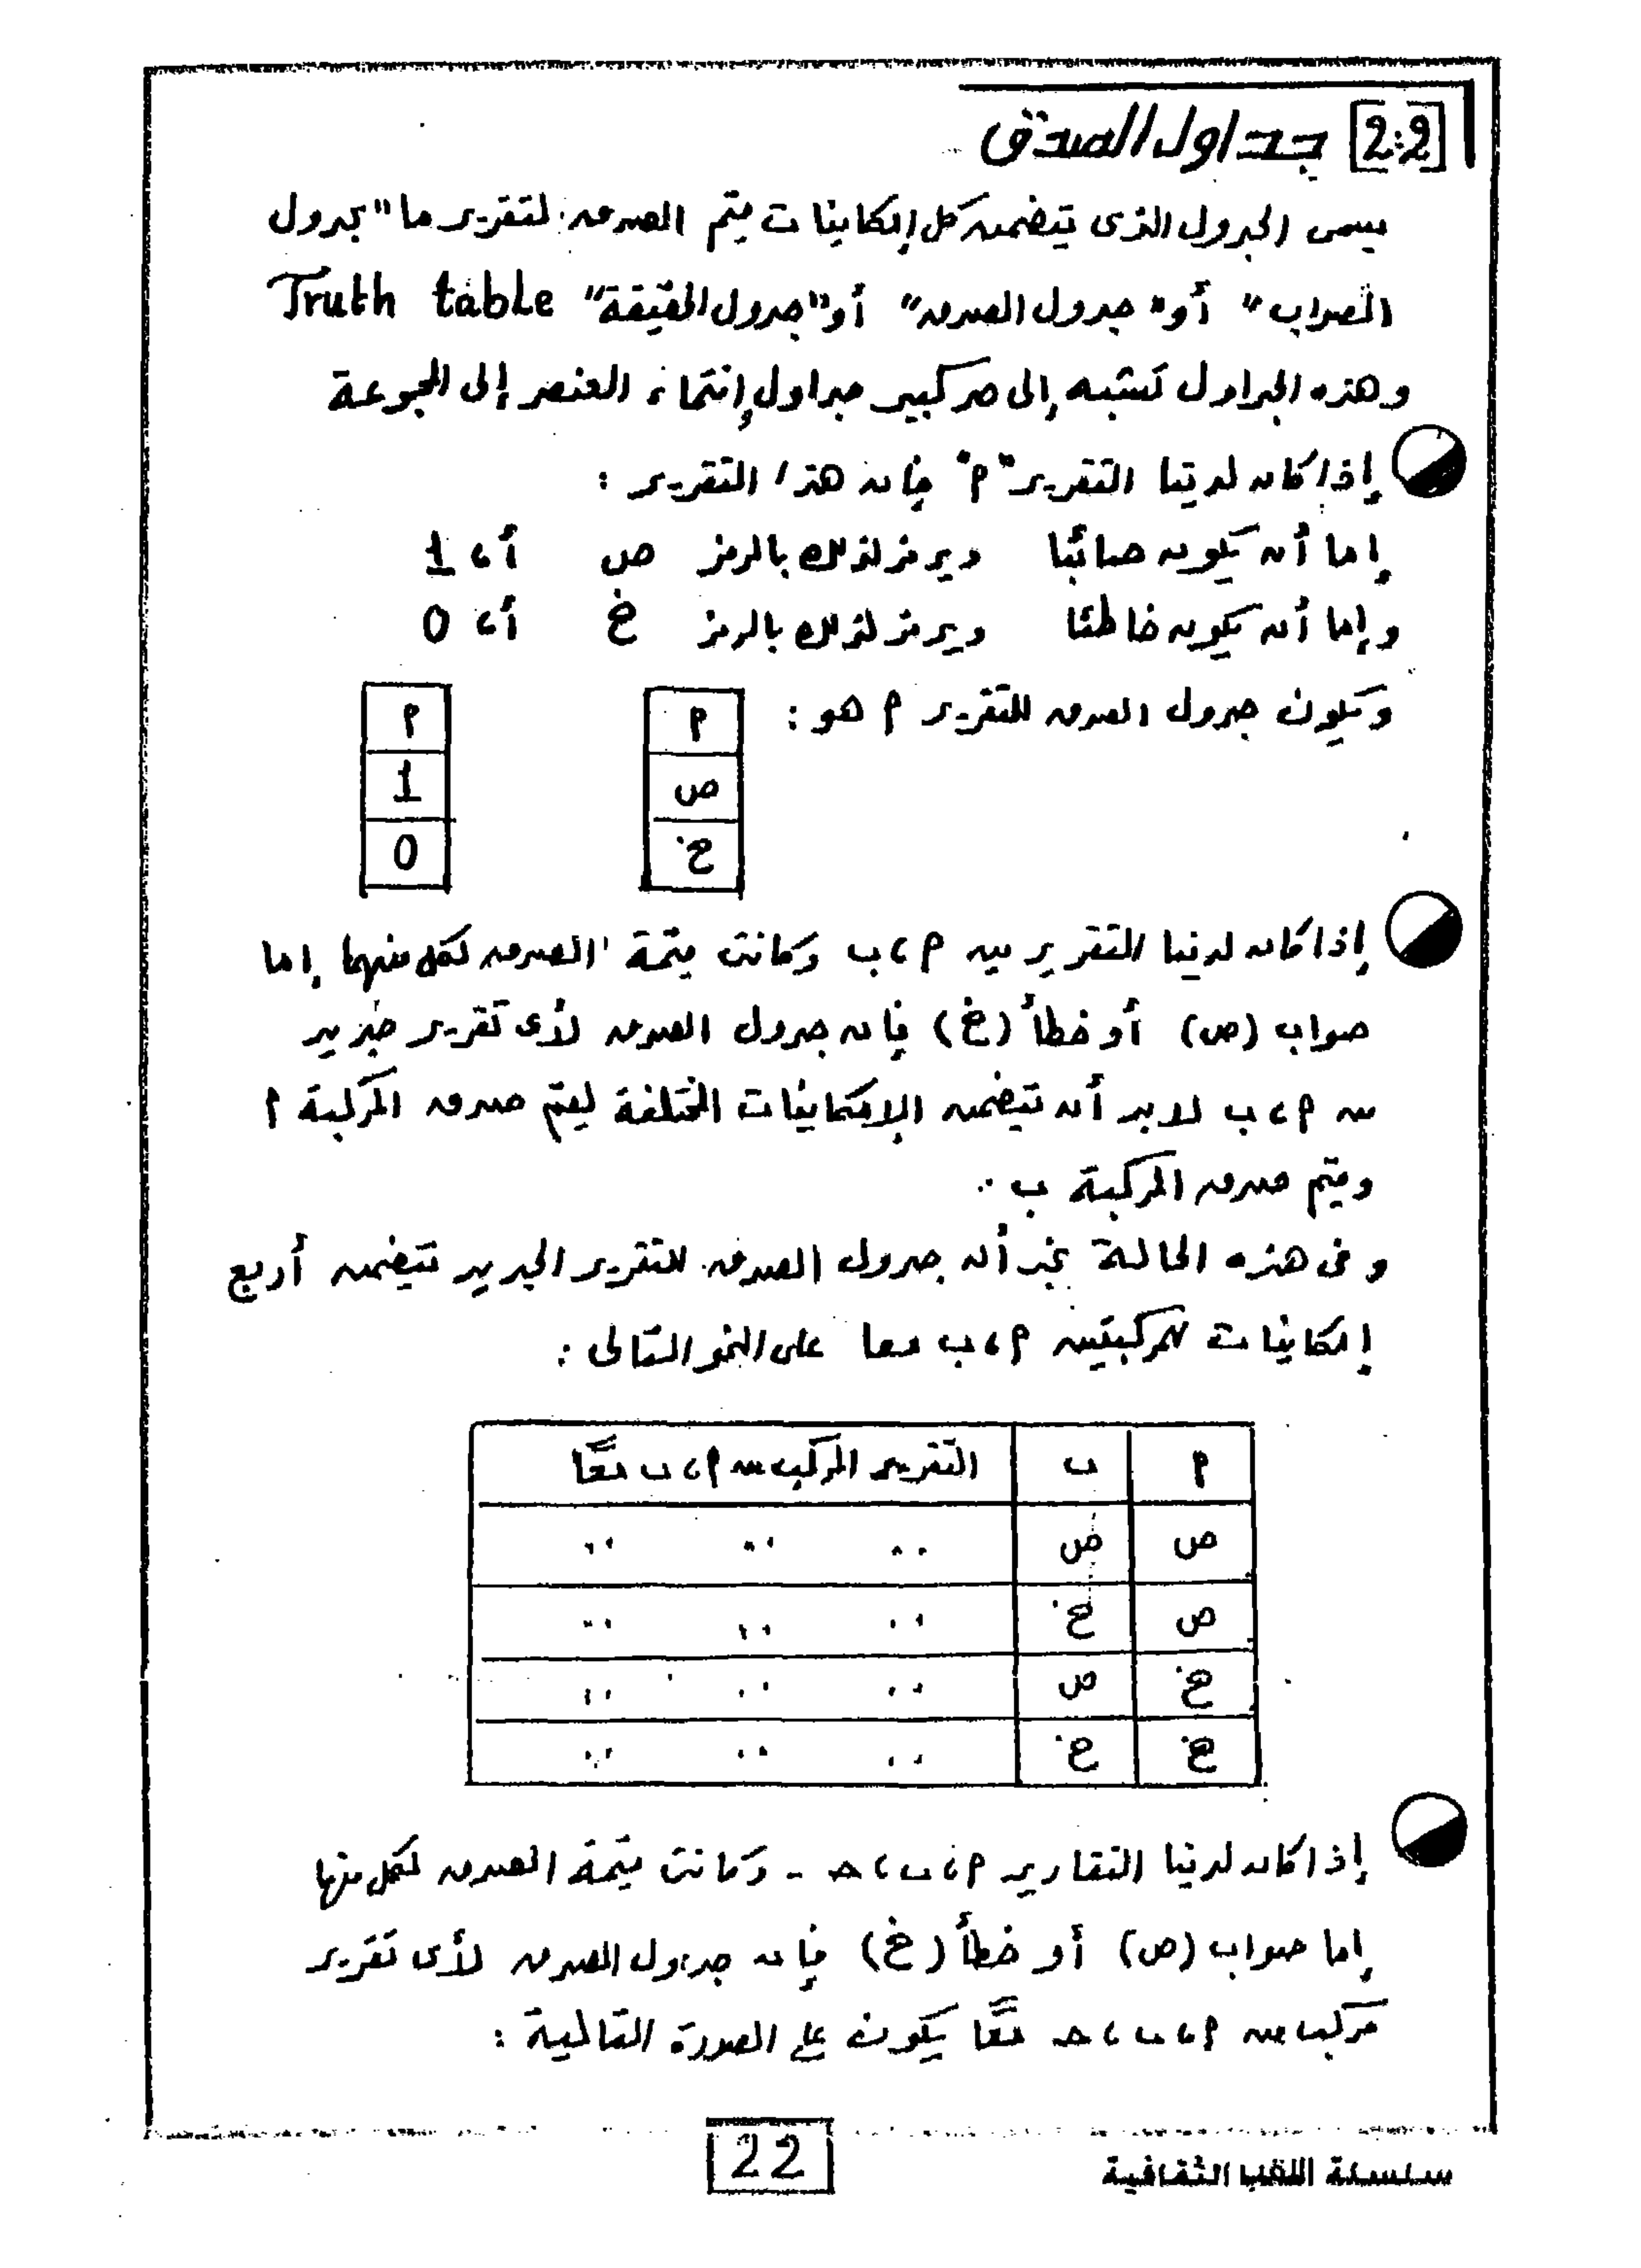 [2:2] جداول الصدق
يسمى الجدول الذى يتضمن كل إمكانيات قيم الصدق لتقرير ما "بجدول
الصواب" أو "جدول الصدق" أو "جدول الحقيقة" Truth table
وهذه الجداول تشبه إلى حد كبير جداول إنتماء العنصر إلى المجموعة
إذا كان لدينا التقرير "م" فإن هذا التقرير :
إما أن يكون صائبا ويرمز لذلك بالرمز ص أ، 1
وإما أن يكون خاطئا ويرمز لذلك بالرمز خ أ، 0
ويكون جدول الصدق للتقرير م هو :
م م
ص 1
خ 0
إذا كان لدينا التقريرين م ، ب وكانت قيمة الصدق لكل منهما إما
صواب (ص) أو خطأ (خ) فإن جدول الصدق لأى تقرير جديد
من م ، ب لابد أن يتضمن الإمكانيات المختلفة لقيم صدق المركبة م
وقيم صدق المركبة ب .
وفى هذه الحالة نجد أن جدول الصدق للتقرير الجديد يتضمن أربع
إمكانيات للمركبتين م ، ب معا على النحو التالى :
م ب التقرير المركب من م ، ب معًا
ص ص .. .. ..
ص خ .. .. ..
خ ص .. .. ..
خ خ .. .. ..
إذا كان لدينا التقارير م ، ب ، حـ - وكانت قيمة الصدق لكل منها
إما صواب (ص) أو خطأ (خ) فإن جدول الصدق لأى تقرير
مركب من م ، ب ، حـ معًا يكون على الصورة التالية :
22
سلسلة اللقب الثقافية